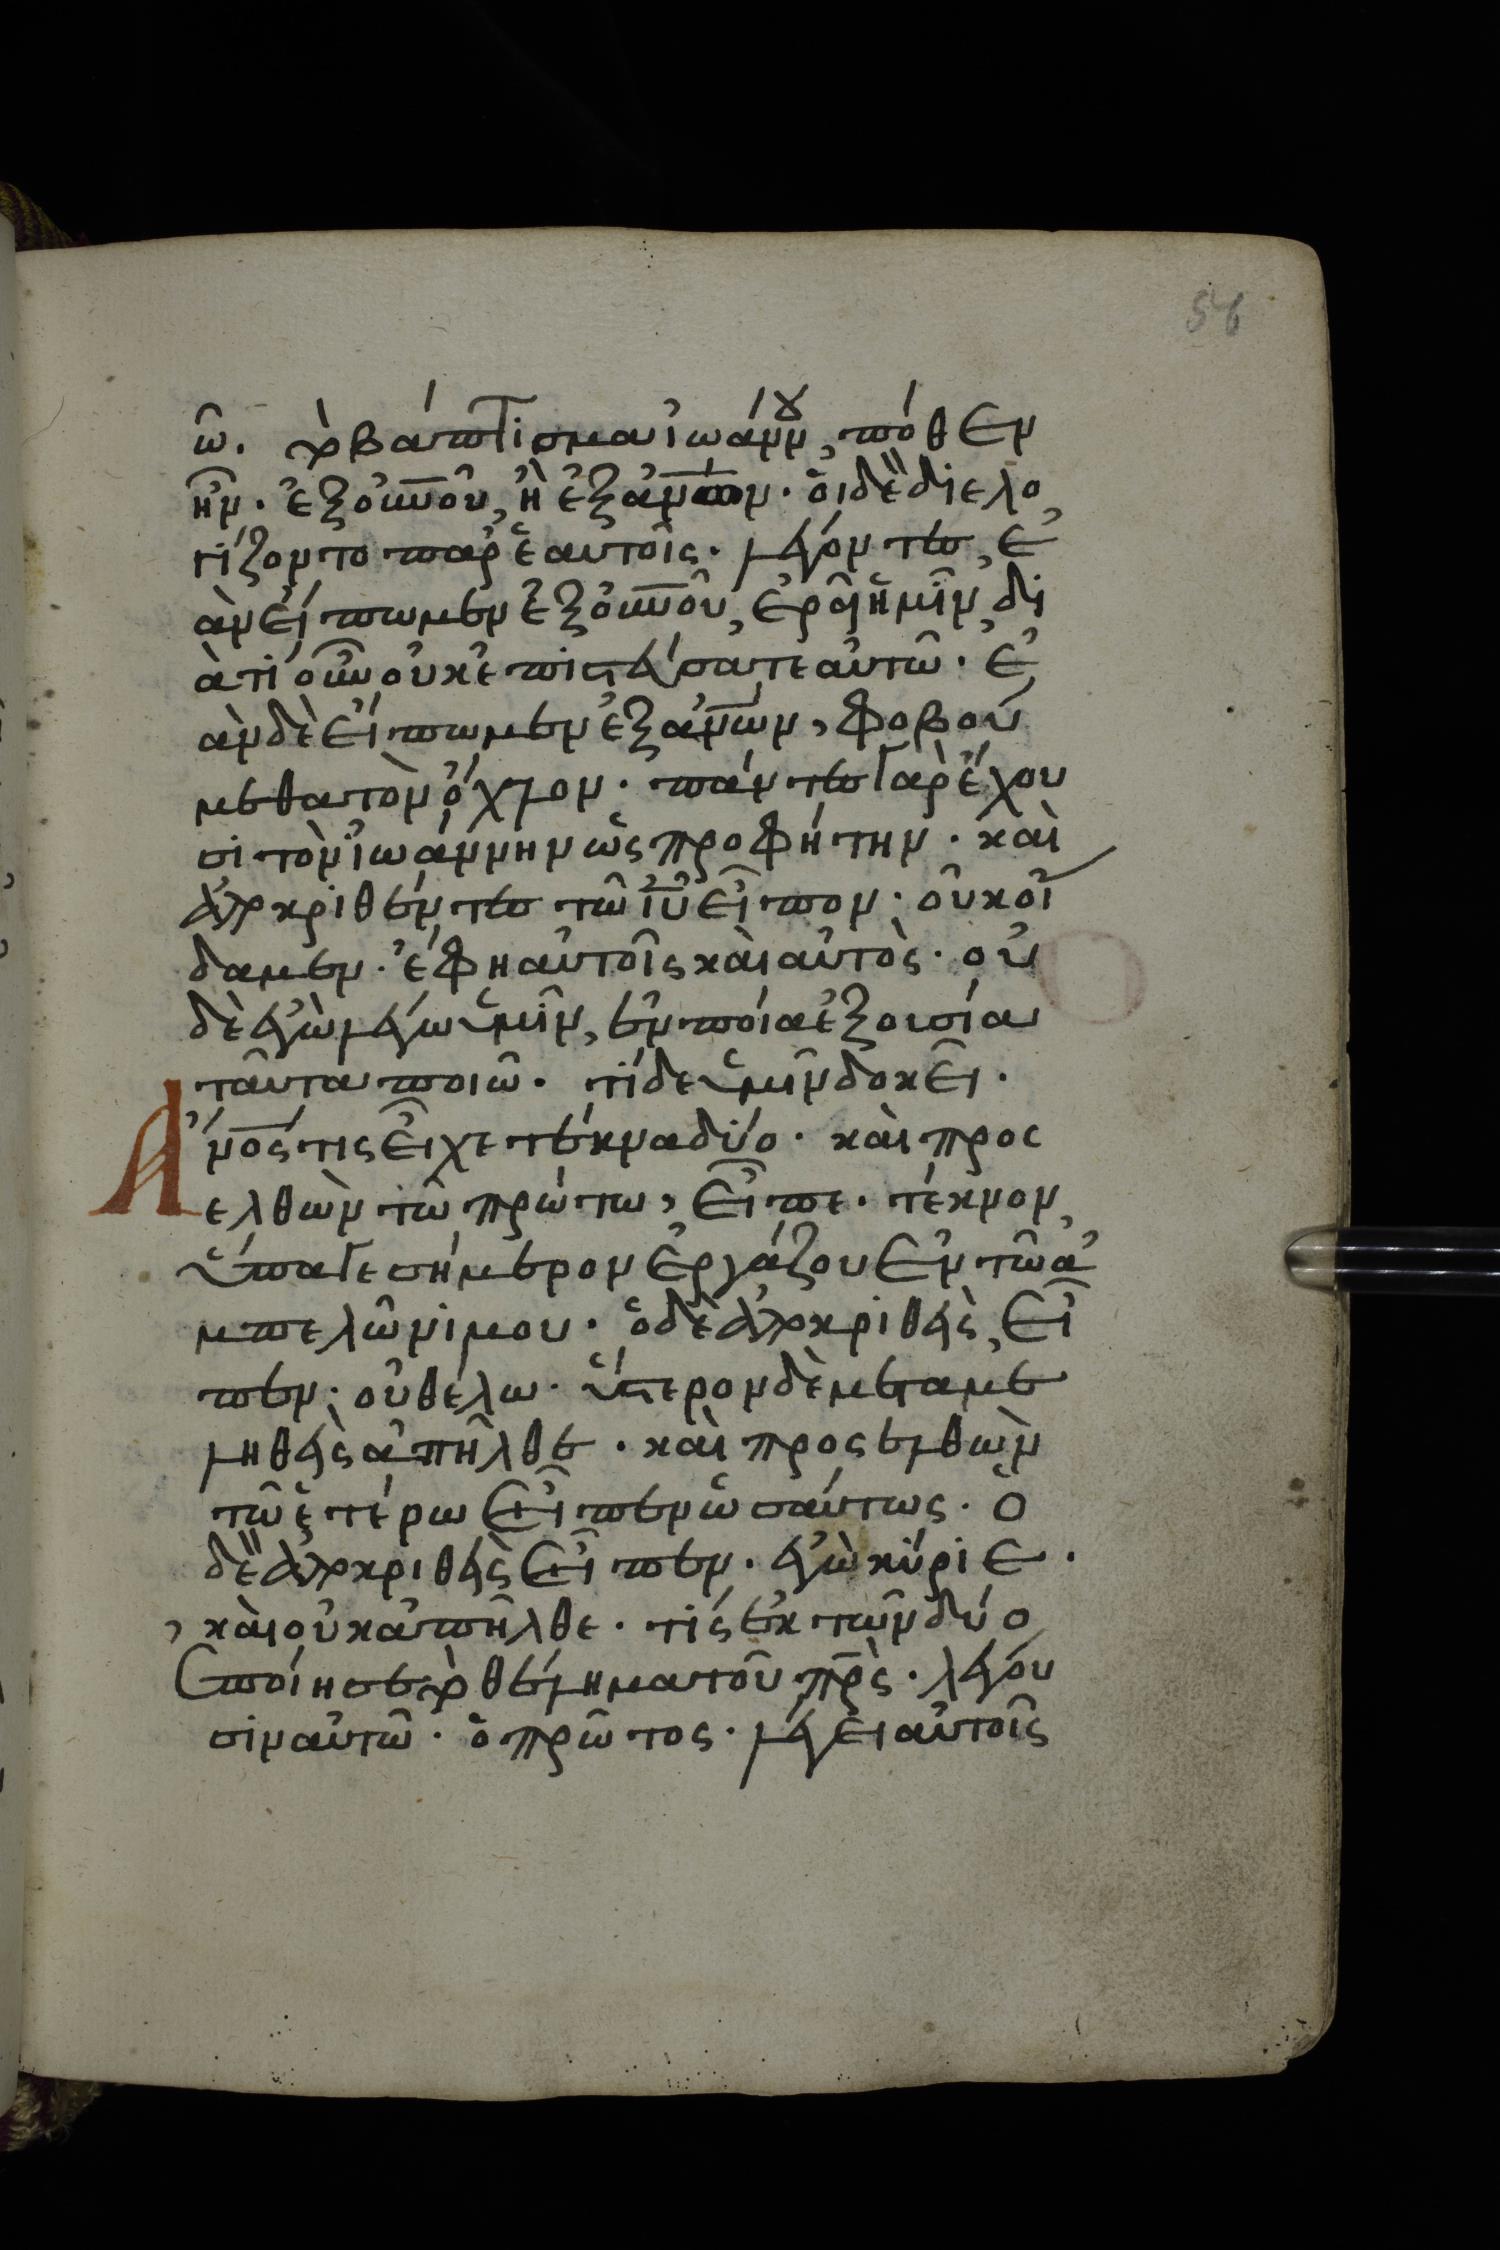 56
ῶ. τὸ βάπτισμα ἰωάννου, πόθεν
ἦν. ἐξ οὐνοῦ, ἢ ἐξ ἀνων. οἱ δὲ διελο
γίζοντο παρ ἑαυτοῖς. λέγοντες, ἐ
ὰν εἴπωμεν ἐξ οὐνοῦ, ἐρεῖ ἡμῖν, δι
ατί οὖν οὐκ ἐπιστεύσατε αὐτῶ. ἐ
ὰν δὲ εἴπωμεν ἐξ ἀνων, φοβού
μεθα τὸν ὄχλον. πάντες γὰρ ἔχου
σι τὸν ἰωάννην ὡς προφήτην. καὶ
ἀποκριθέντες τῶ ἰῦ εἶπον. οὐκ οἴ
δαμεν. ἔφη αὐτοῖς καὶ αὐτὸς. οὐ
δὲ ἐγὼ λέγω ὑμῖν, ἐν ποία ἐξουσία
ταῦτα ποιῶ. τί δε ὑμῖν δοκεῖ.
Ἄνος τις εἶχε τέκνα δύο. καὶ προσ
ελθὼν τῶ πρώτω, εἶπε. τέκνον,
ὕπαγε σήμερον ἐργάζου ἐν τῶ ἀ
μπελῶνι μου. ὁ δὲ ἀποκριθεὶς, εἶ
πεν. οὐ θέλω. ὕστερον δὲ μεταμε
ληθεὶς ἀπῆλθε. καὶ προσελθὼν
τῶ ἑτέρω εἶπεν ὡσαύτως. ὁ
δὲ ἀποκριθεὶς εἶπεν. ἐγὼ κύριε.
καὶ οὐκ ἀπῆλθε. τίς ἐκ τῶν δύο
ἐποίησε τὸ θέλημα τοῦ πρς. λέγου
σιν αὐτῶ. ὁ πρῶτος. λέγει αὐτοῖς